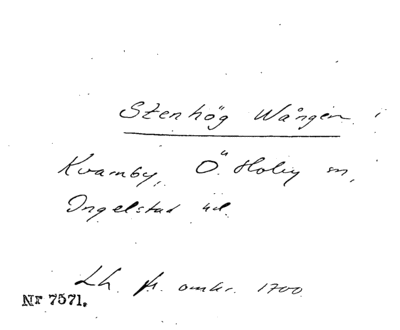 Stenhög Wången
Kvarnby, Ö. Hoby sn,
Ingelstad hd.
Lh. fr. omkr. 1700
Nr 7571.